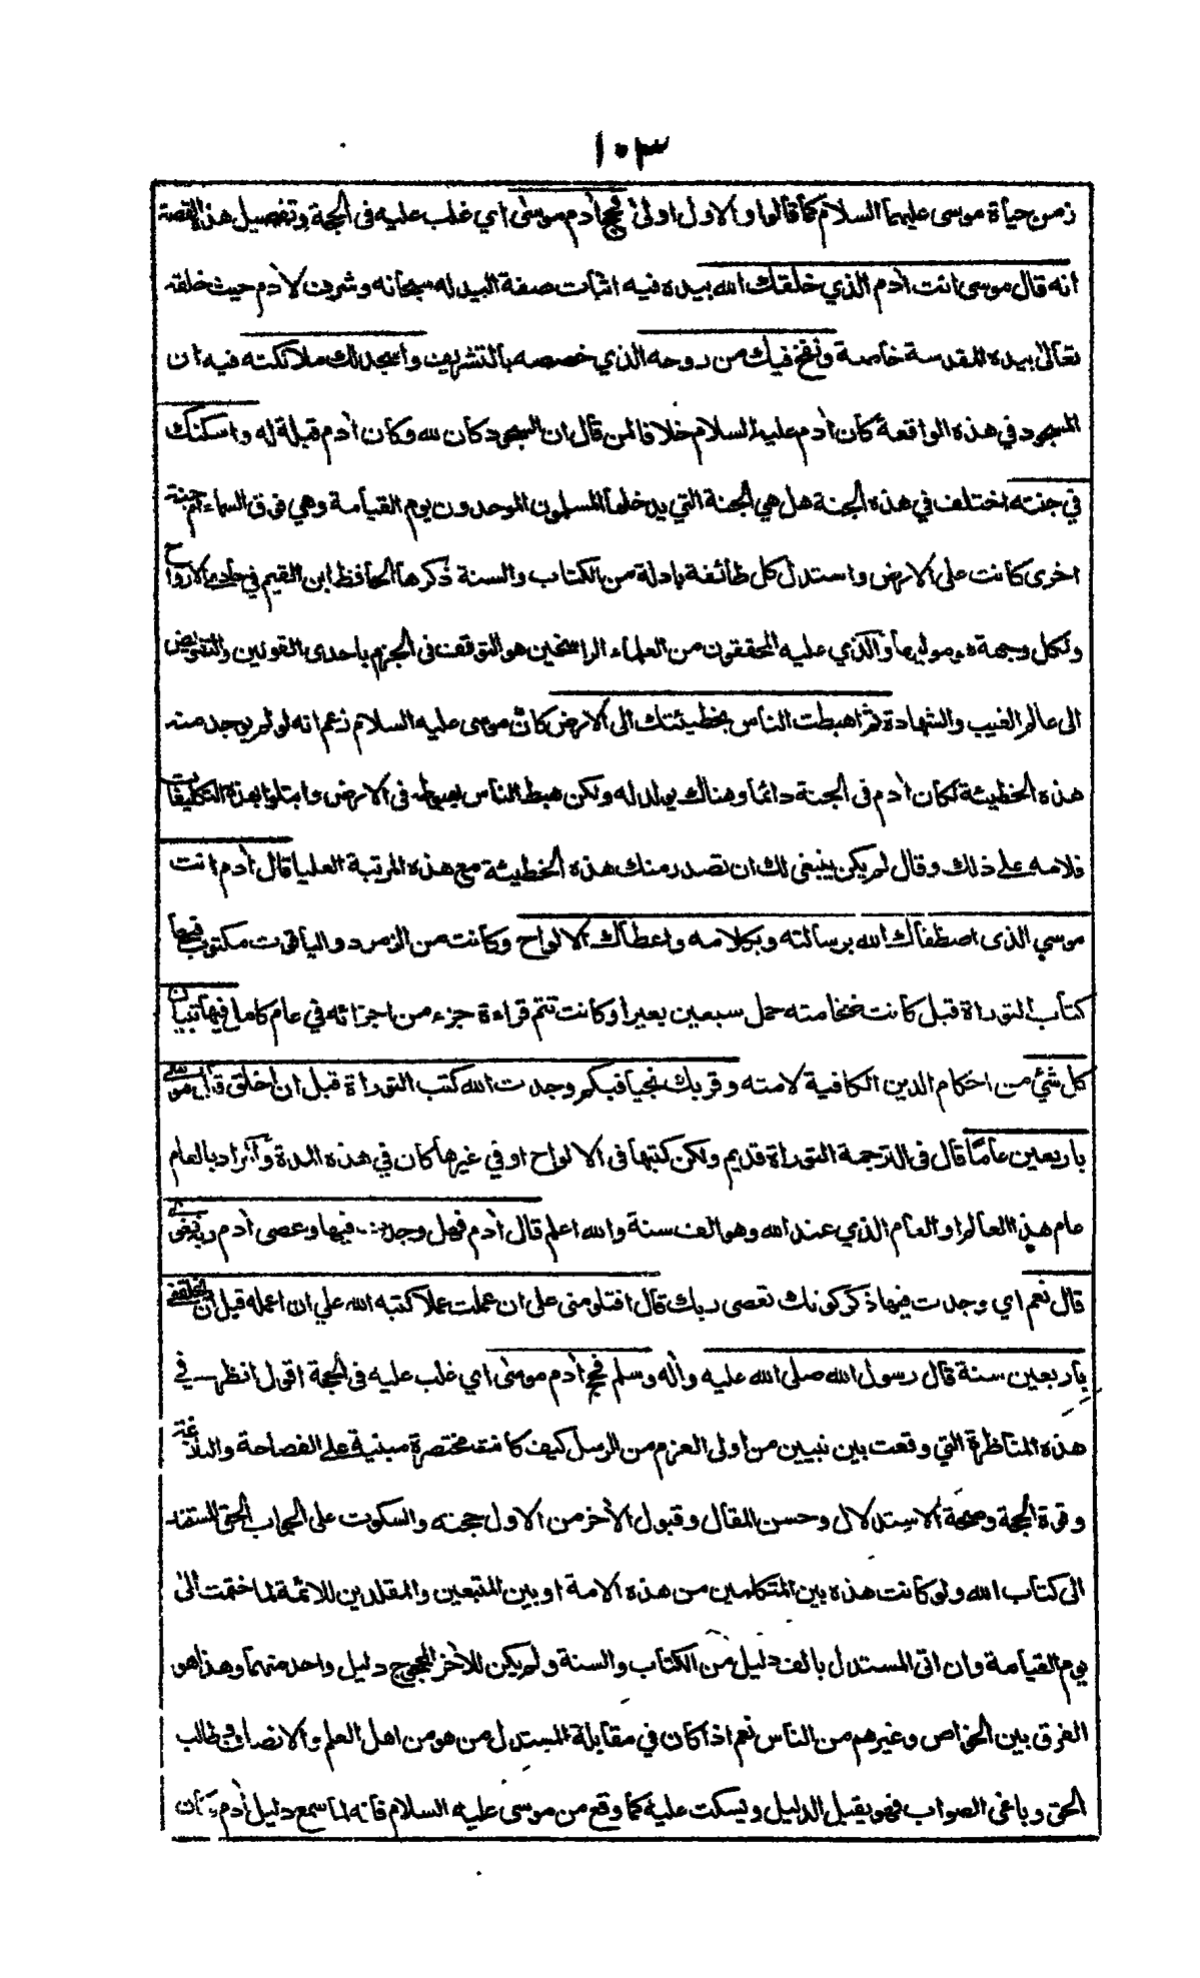 ١٠٣
زمن حياة موسى عليهما السلام كما قالوا والاول اولى فحج أدم موسى اي غلب عليه فى الحجة وتفصيل هذه القصة
انه قال موسى انت أدم الذي خلقك الله بيده فيه اثبات صفة اليد له سبحانه وشرف لأدم حيث خلقه
تعالى بيده المقدسة خاصة ونفخ فيك من روحه الذي خصصه بالتشريف واسجد لك ملائكته فيه ان
السجود في هذه الواقعة كان أدم عليه السلام خلافا لمن قال ان السجود كان لله وكان أدم قبلة له واسكنك
في جنته اختلف في هذه الجنة هل هي الجنة التي يدخلها المسلمون الموحدون يوم القيامة وهي فوق السماء ام جنة
اخرى كانت على الارض واستدل كل طائفة بادلة من الكتاب والسنة ذكرها الحافظ ابن القيم في حادى الارواح
ولكل وجهة هو موليها والذي عليه المحققون من العلماء الراسخين هو التوقف فى الجزم باحدى القولين والتفويض
الى عالم الغيب والشهادة ثم اهبطت الناس بخطيئتك الى الارض كان موسى عليه السلام زعم انه لو لم يوجد منه
هذه الخطيئة لكان أدم فى الجنة دائما وهناك يولد له ولكن هبط الناس بهبوطه فى الارض وابتلوا بهذه التكليفات
فلامه على ذلك وقال لم يكن ينبغى لك ان تصدر منك هذه الخطيئة مع هذه المرتبة العليا قال أدم انت
موسي الذى اصطفاك الله برسالته وبكلامه واعطاك الالواح وكانت من الزمرد والياقوت مكتوب فيها
كتاب التوراة قيل كانت ضخامته حمل سبعين بعيرا وكانت تتم قراءة جزء من اجزائه في عام كامل فيها تبيان
كل شئ من احكام الدين الكافية لامته وقربك نجيا فبكم وجدت الله كتب التوراة قبل ان اخلق قال موسى
باربعين عاما قال فى الترجمة التوراة قديم ولكن كتبها فى الالواح او في غيرها كان في هذه المدة والمراد بالعام
عام هذا العالم او العام الذي عند الله وهو الف سنة والله اعلم قال أدم فهل وجدت فيها وعصى أدم ربه فغوى
قال نعم اي وجدت فيها ذكر كونك تعصى ربك قال افتلومنى على ان عملت عملا كتبه الله علي ان اعمله قبل ان يخلقنى
باربعين سنة قال رسول الله صلى الله عليه وأله وسلم فحج أدم موسى اي غلب عليه فى الحجة اقول انظر في
هذه المناظرة التي وقعت بين نبيين من اولى العزم من الرسل كيف كانت مختصرة مبنية على الفصاحة والبلاغة
وقوة الحجة وصحة الاستدلال وحسن المقال وقبول الأخر من الاول حجته والسكوت على الجواب الحق المستند
الى كتاب الله ولو كانت هذه بين المتكلمين من هذه الامة او بين المتبعين والمقلدين للائمة لما ختمت الى
يوم القيامة وان اتى المستدل بالف دليل من الكتاب والسنة ولم يكن للأخر المحجوج دليل واحد منهما وهذا هو
الفرق بين الخواص وغيرهم من الناس نعم اذا كان في مقابلة المستدل من هو من اهل العلم والانصاف وطالب
الحق وباغى الصواب فهو يقبل الدليل ويسكت عليه كما وقع من موسى عليه السلام فانه لما سمع دليل أدم